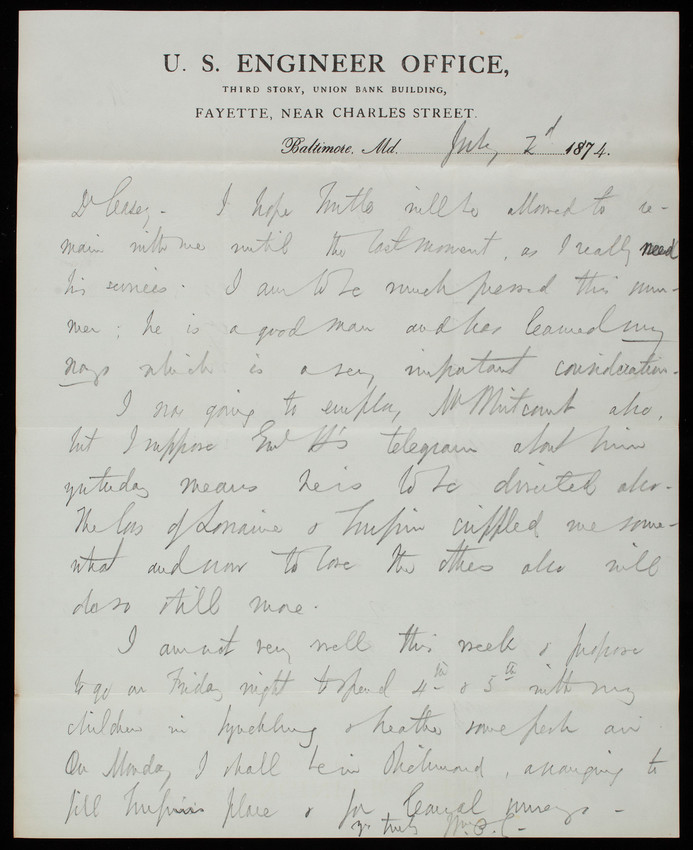 U. S. ENGINEER OFFICE,
THIRD STORY, UNION BANK BUILDING,
FAYETTE, NEAR CHARLES STREET.
Baltimore, Md. July 2d 1874.
Dr Casey - I hope will be allowed to re-
main with me until the last moment, as I really need
his services. I am to be much pressed this sum-
mer; he is a good man and has learned my
ways which is a very important consideration.
I was going to employ Mr also,
but I suppose Genl H's telegram about him
yesterday means he is to be diverted also.
The loss of Lorraine & Turpin crippled me some-
what and now to lose the others also will
do so still more.
I am not very well this week & propose
to go on Friday night to spend 4th & 5th with my
children in Lynchburg & breathe some fresh air
On Monday I shall be in Richmond, arranging to
fill Turpin's place & for surveys -
yr truly Wm P. C-